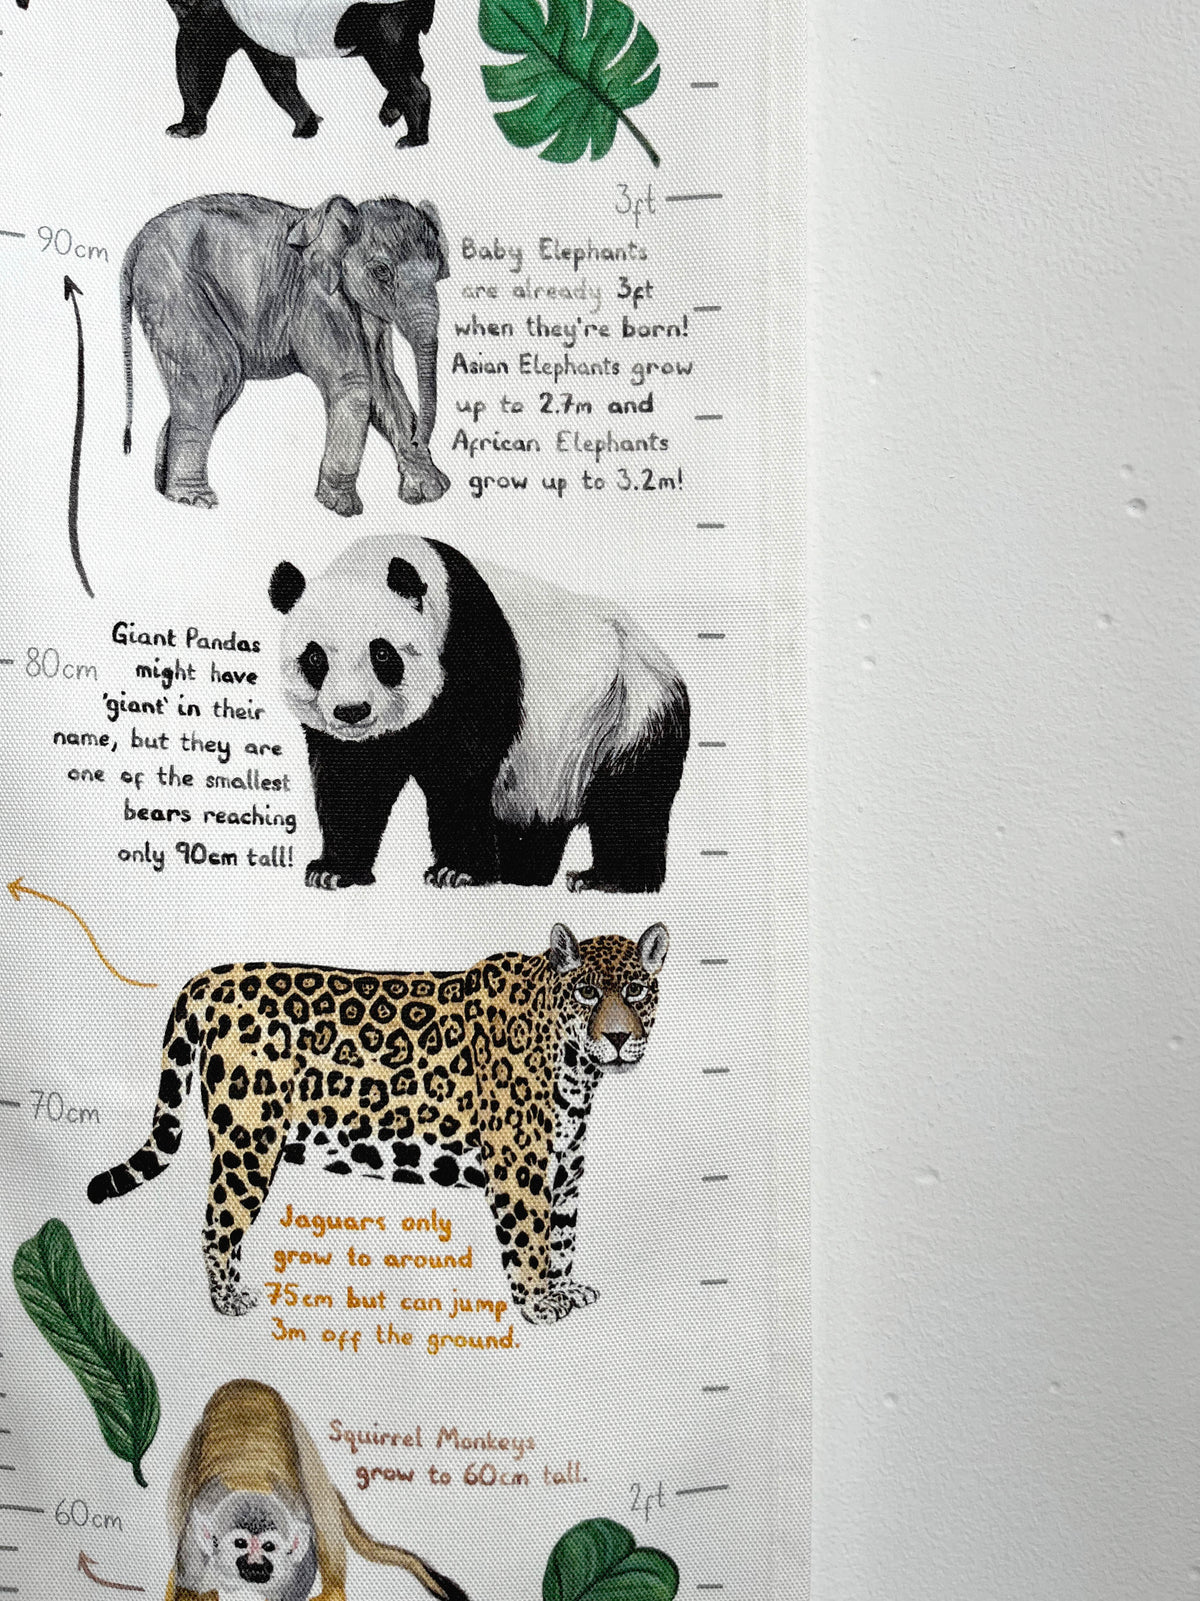 3ft
90cm
Baby Elephants
are already 3ft
when they're born!
Asian Elephants grow
up to 2.7m and
African Elephants
grow up to 3.2m!
Giant Pandas
80cm
might have
'giant' in their
name, but they are
one of the smallest
bears reaching
only 90cm tall!
70cm
Jaguars only
grow to around
75cm but can jump
3m off the ground.
Squirrel Monkeys
grow to 60cm tall.
2ft
60cm